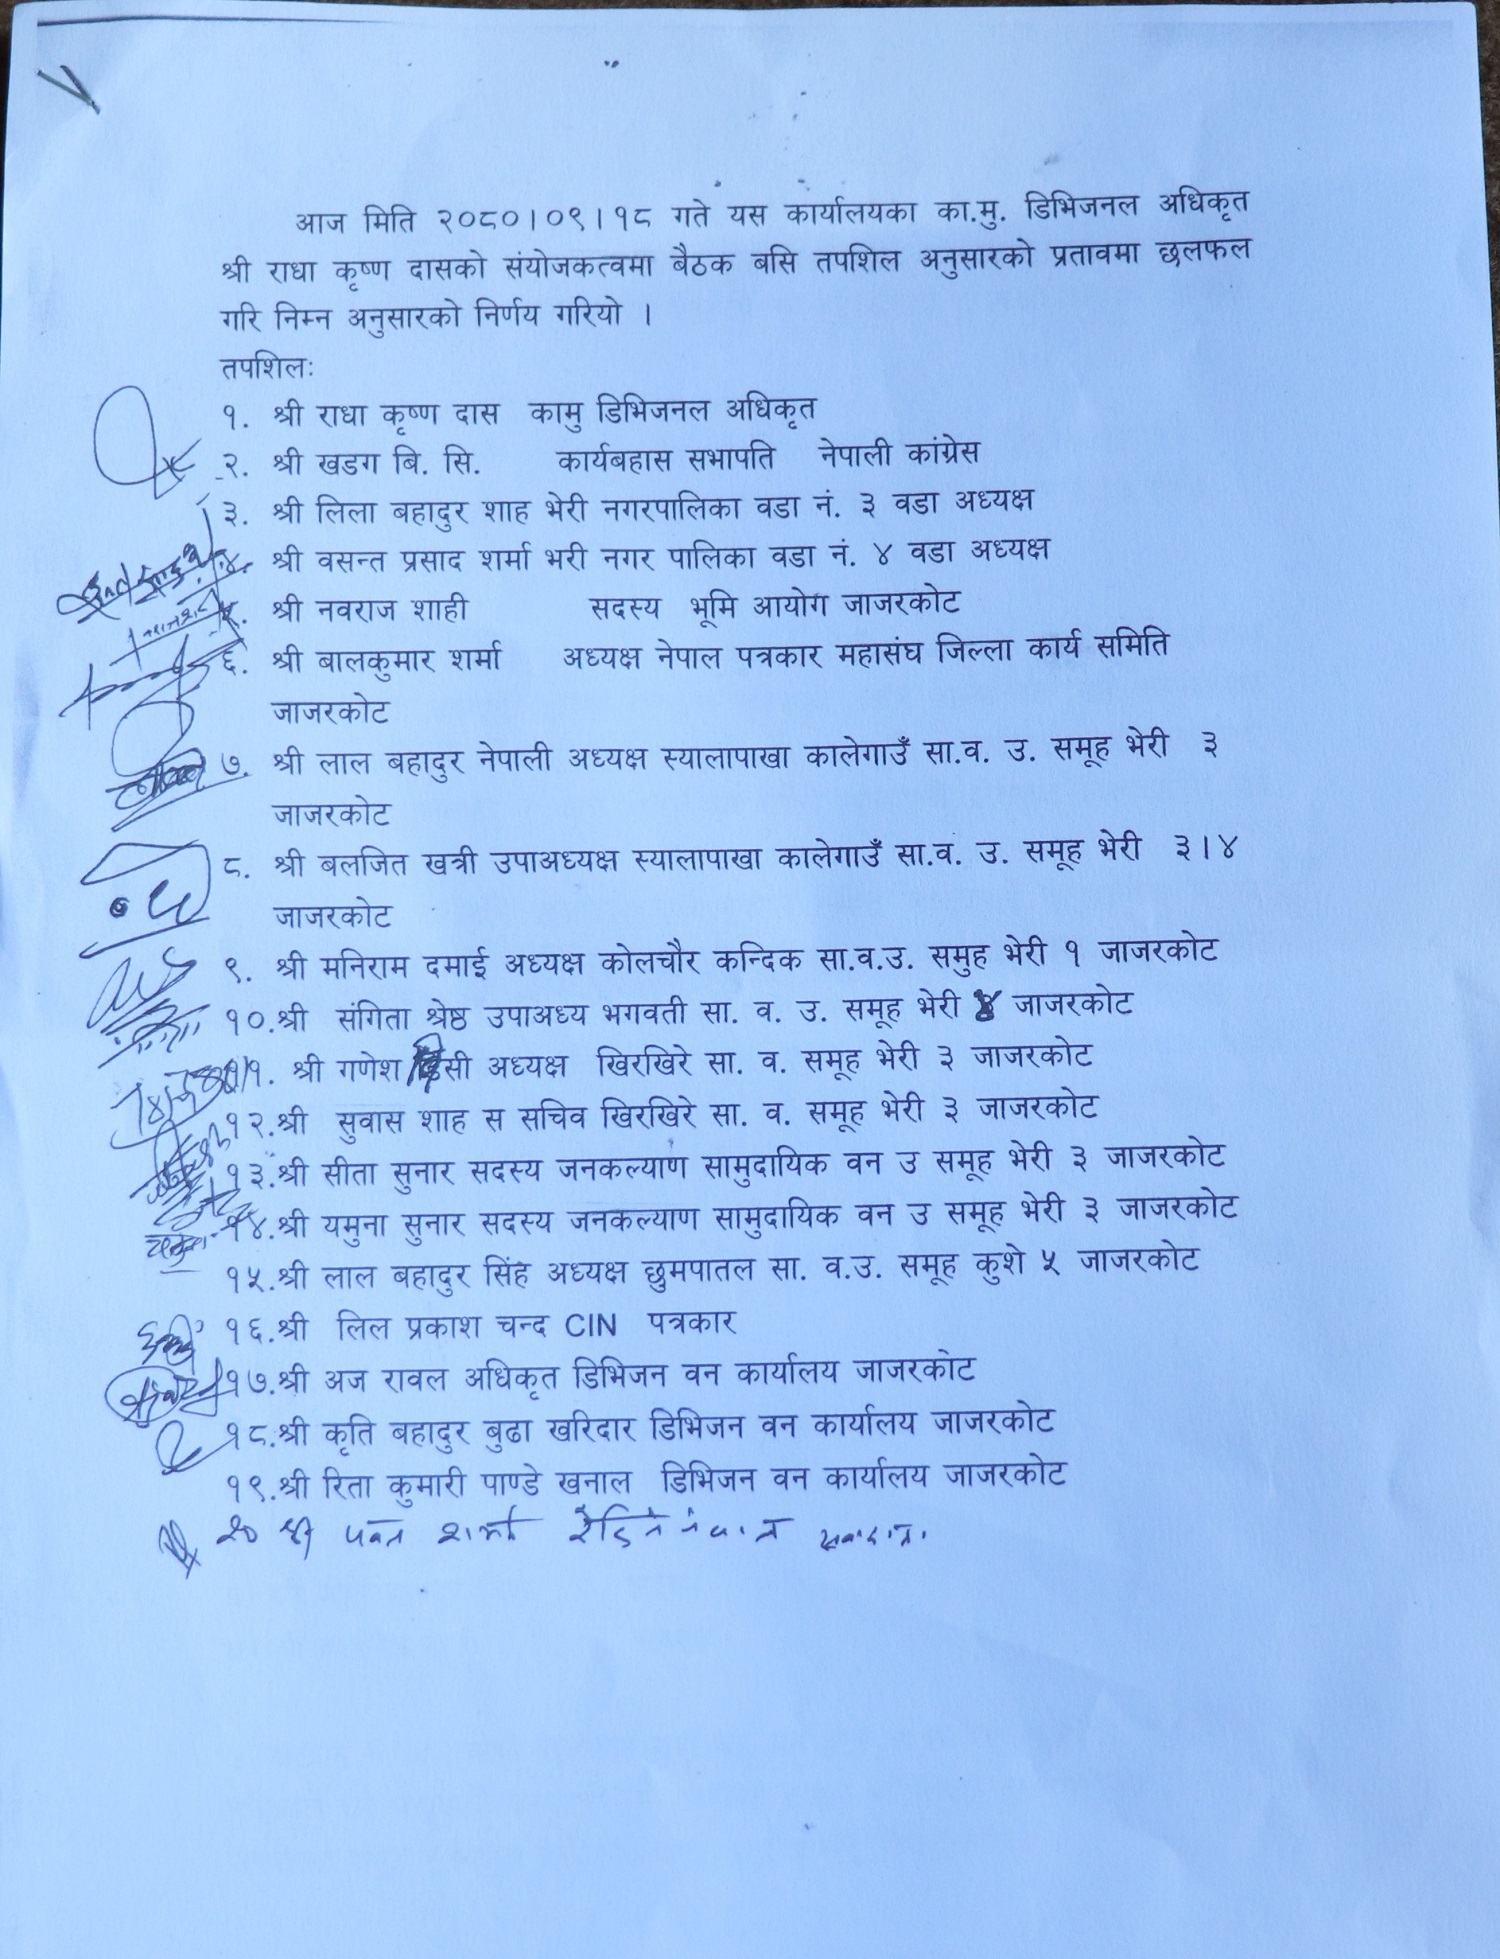 आज मिति २०८०।०९।१८ गते यस कार्यालयका का.मु. डिभिजनल अधिकृत
श्री राधा कृष्ण दासको संयोजकत्वमा बैठक बसि तपशिल अनुसारको प्रतावमा छलफल
गरि निम्न अनुसारको निर्णय गरियो ।
तपशिलः
१. श्री राधा कृष्ण दास कामु डिभिजनल अधिकृत
२. श्री खडग बि. सि. कार्यबहास सभापति नेपाली कांग्रेस
३. श्री लिला बहादुर शाह भेरी नगरपालिका वडा नं. ३ वडा अध्यक्ष
४. श्री वसन्त प्रसाद शर्मा भरी नगर पालिका वडा नं. ४ वडा अध्यक्ष
५. श्री नवराज शाही सदस्य भूमि आयोग जाजरकोट
६. श्री बालकुमार शर्मा अध्यक्ष नेपाल पत्रकार महासंघ जिल्ला कार्य समिति
जाजरकोट
७. श्री लाल बहादुर नेपाली अध्यक्ष स्यालापाखा कालेगाउँ सा.व. उ. समूह भेरी ३
जाजरकोट
८. श्री बलजित खत्री उपाअध्यक्ष स्यालापाखा कालेगाउँ सा.व. उ. समूह भेरी ३।४
जाजरकोट
९. श्री मनिराम दमाई अध्यक्ष कोलचौर कन्दिक सा.व.उ. समुह भेरी १ जाजरकोट
१०.श्री संगिता श्रेष्ठ उपाअध्य भगवती सा. व. उ. समूह भेरी ४ जाजरकोट
११. श्री गणेश सी अध्यक्ष खिरखिरे सा. व. समूह भेरी ३ जाजरकोट
१२.श्री सुवास शाह स सचिव खिरखिरे सा. व. समूह भेरी ३ जाजरकोट
१३.श्री सीता सुनार सदस्य जनकल्याण सामुदायिक वन उ समूह भेरी ३ जाजरकोट
१४.श्री यमुना सुनार सदस्य जनकल्याण सामुदायिक वन उ समूह भेरी ३ जाजरकोट
१५.श्री लाल बहादुर सिंह अध्यक्ष छुमपातल सा. व.उ. समूह कुशे ५ जाजरकोट
१६.श्री लिल प्रकाश चन्द CIN पत्रकार
१७.श्री अज रावल अधिकृत डिभिजन वन कार्यालय जाजरकोट
१८.श्री कृति बहादुर बुढा खरिदार डिभिजन वन कार्यालय जाजरकोट
१९.श्री रिता कुमारी पाण्डे खनाल डिभिजन वन कार्यालय जाजरकोट
२० श्री शर्मा